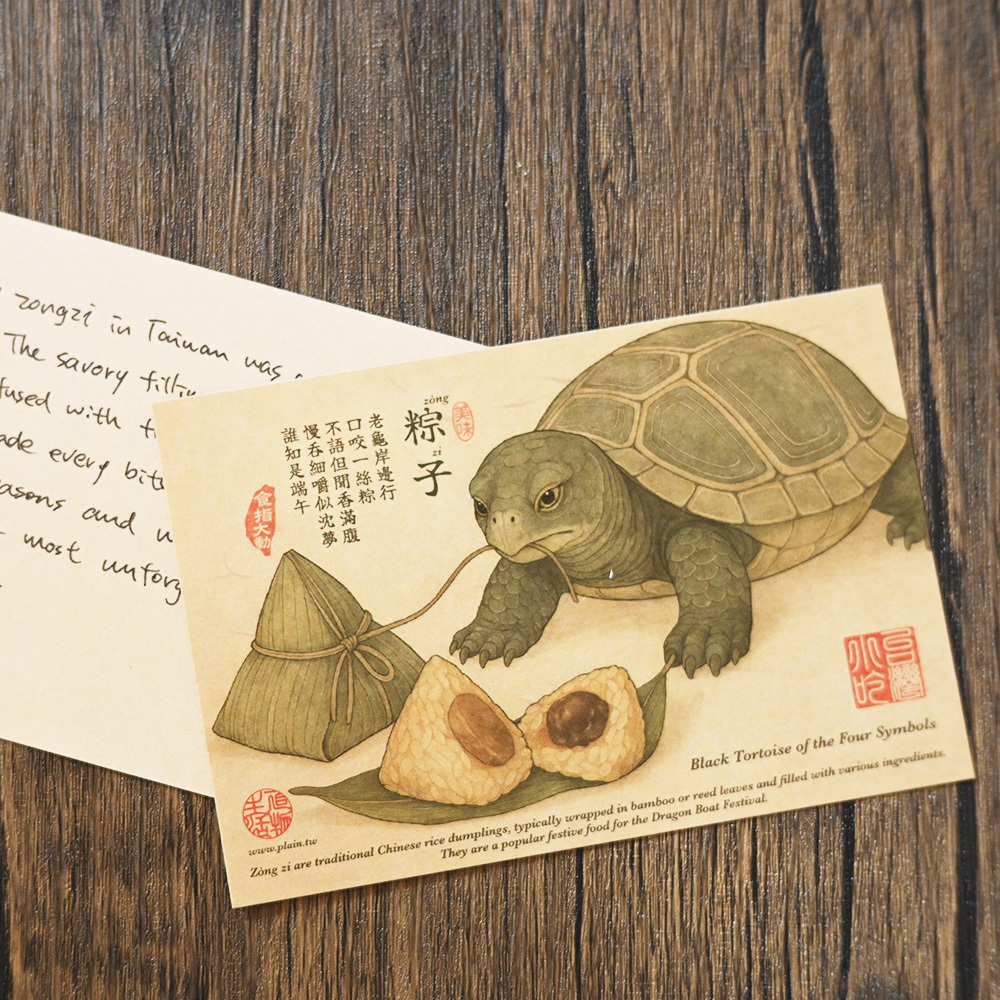 zongzi in Taiwan was
The savory
with
every
and
most
zòng
粽
zi
子
美味
老龜岸邊行
口咬一絲粽
不語但聞香滿腹
慢吞細嚼似沈夢
誰知是端午
食指大動
台灣小吃
Black Tortoise of the Four Symbols
www.plain.tw
Zòng zi are traditional Chinese rice dumplings, typically wrapped in bamboo or reed leaves and filled with various ingredients.
They are a popular festive food for the Dragon Boat Festival.